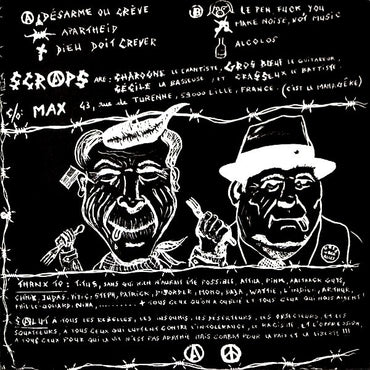 A DÉSARME OU CRÈVE
APARTHEID
DIEU DOIT CREVER
B LE PEN FUCK YOU
MAKE NOISE, NOT MUSIC
ALCOLOS
SCRAPS ARE : CHAROGNE LE CHANTISTE, GROS BŒUF LE GUITAREUR,
CÉCILE LA BASSEUSE, ET CRASSLUX LE BATTISTE.
C/O: MAX 43, RUE DE TURENNE, 59000 LILLE, FRANCE. (C'EST LE MANAGÈRE)
THANX TO : TITUS, SANS QUI RIEN N'AURAIT ÉTÉ POSSIBLE, ATTILA, PINK,
CHUCK, JUDAS, STEPH, PATRICK, MOHO, WATTIE, ARTHUR,
NINA, + TOUS CEUX QU'ON A OUBLIÉ ET TOUS CEUX QUI NOUS AIDENT!
SALUT À TOUS LES REBELLES, LES INSOUMIS, LES DÉSERTEURS, LES OBJECTEURS, ET LES
SQUATTEURS, À TOUS CEUX QUI LUTTENT CONTRE L'INTOLÉRANCE, LE RACISME, ET L'OPPRESSION,
À TOUS CEUX POUR QUI LA VIE N'EST PAS APATHIE MAIS COMBAT POUR LA PAIX ET LA LIBERTÉ !!!
A